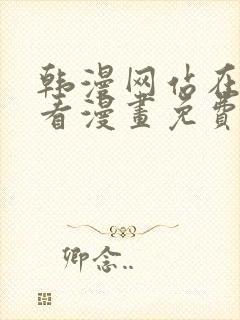 韩漫网站在
看漫畫免費
卿念..